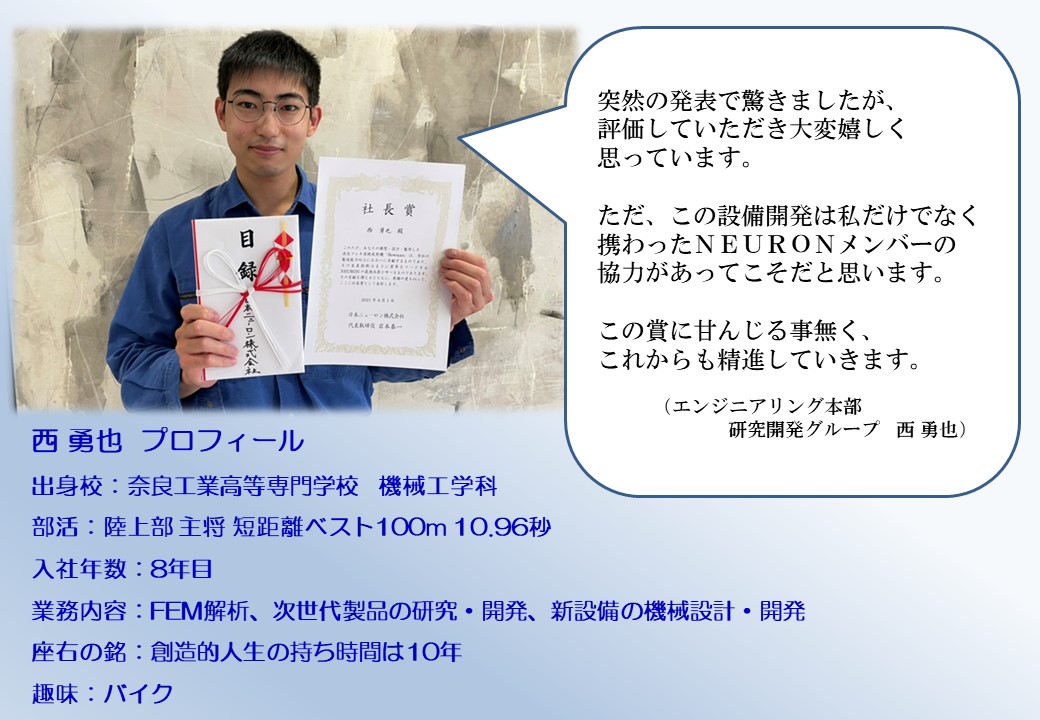 突然の発表で驚きましたが、
評価していただき大変嬉しく
思っています。
ただ、この設備開発は私だけでなく
携わったＮＥＵＲＯＮメンバーの
協力があってこそだと思います。
この賞に甘んじる事無く、
これからも精進していきます。
（エンジニアリング本部
研究開発グループ　西 勇也）
目録
日本ニューロン株式会社
社長賞
西 勇也 殿
2021年6月1日
日本ニューロン株式会社
代表取締役 岩本泰一
西 勇也 プロフィール
出身校：奈良工業高等専門学校　機械工学科
部活：陸上部 主将 短距離ベスト100m 10.96秒
入社年数：8年目
業務内容：FEM解析、次世代製品の研究・開発、新設備の機械設計・開発
座右の銘：創造的人生の持ち時間は10年
趣味：バイク